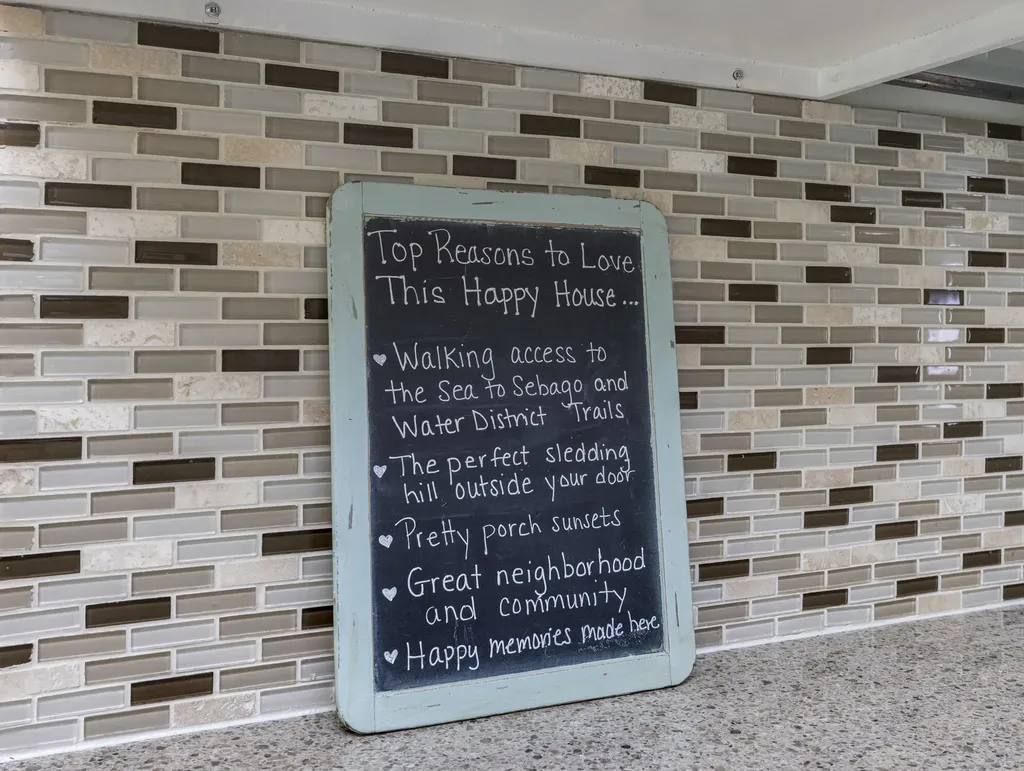 Top Reasons to Love
This Happy House...
♥ Walking access to
the Sea to Sebago and
Water District Trails
♥ The perfect sledding
hill outside your door
♥ Pretty porch sunsets
♥ Great neighborhood
and community
♥ Happy memories made here